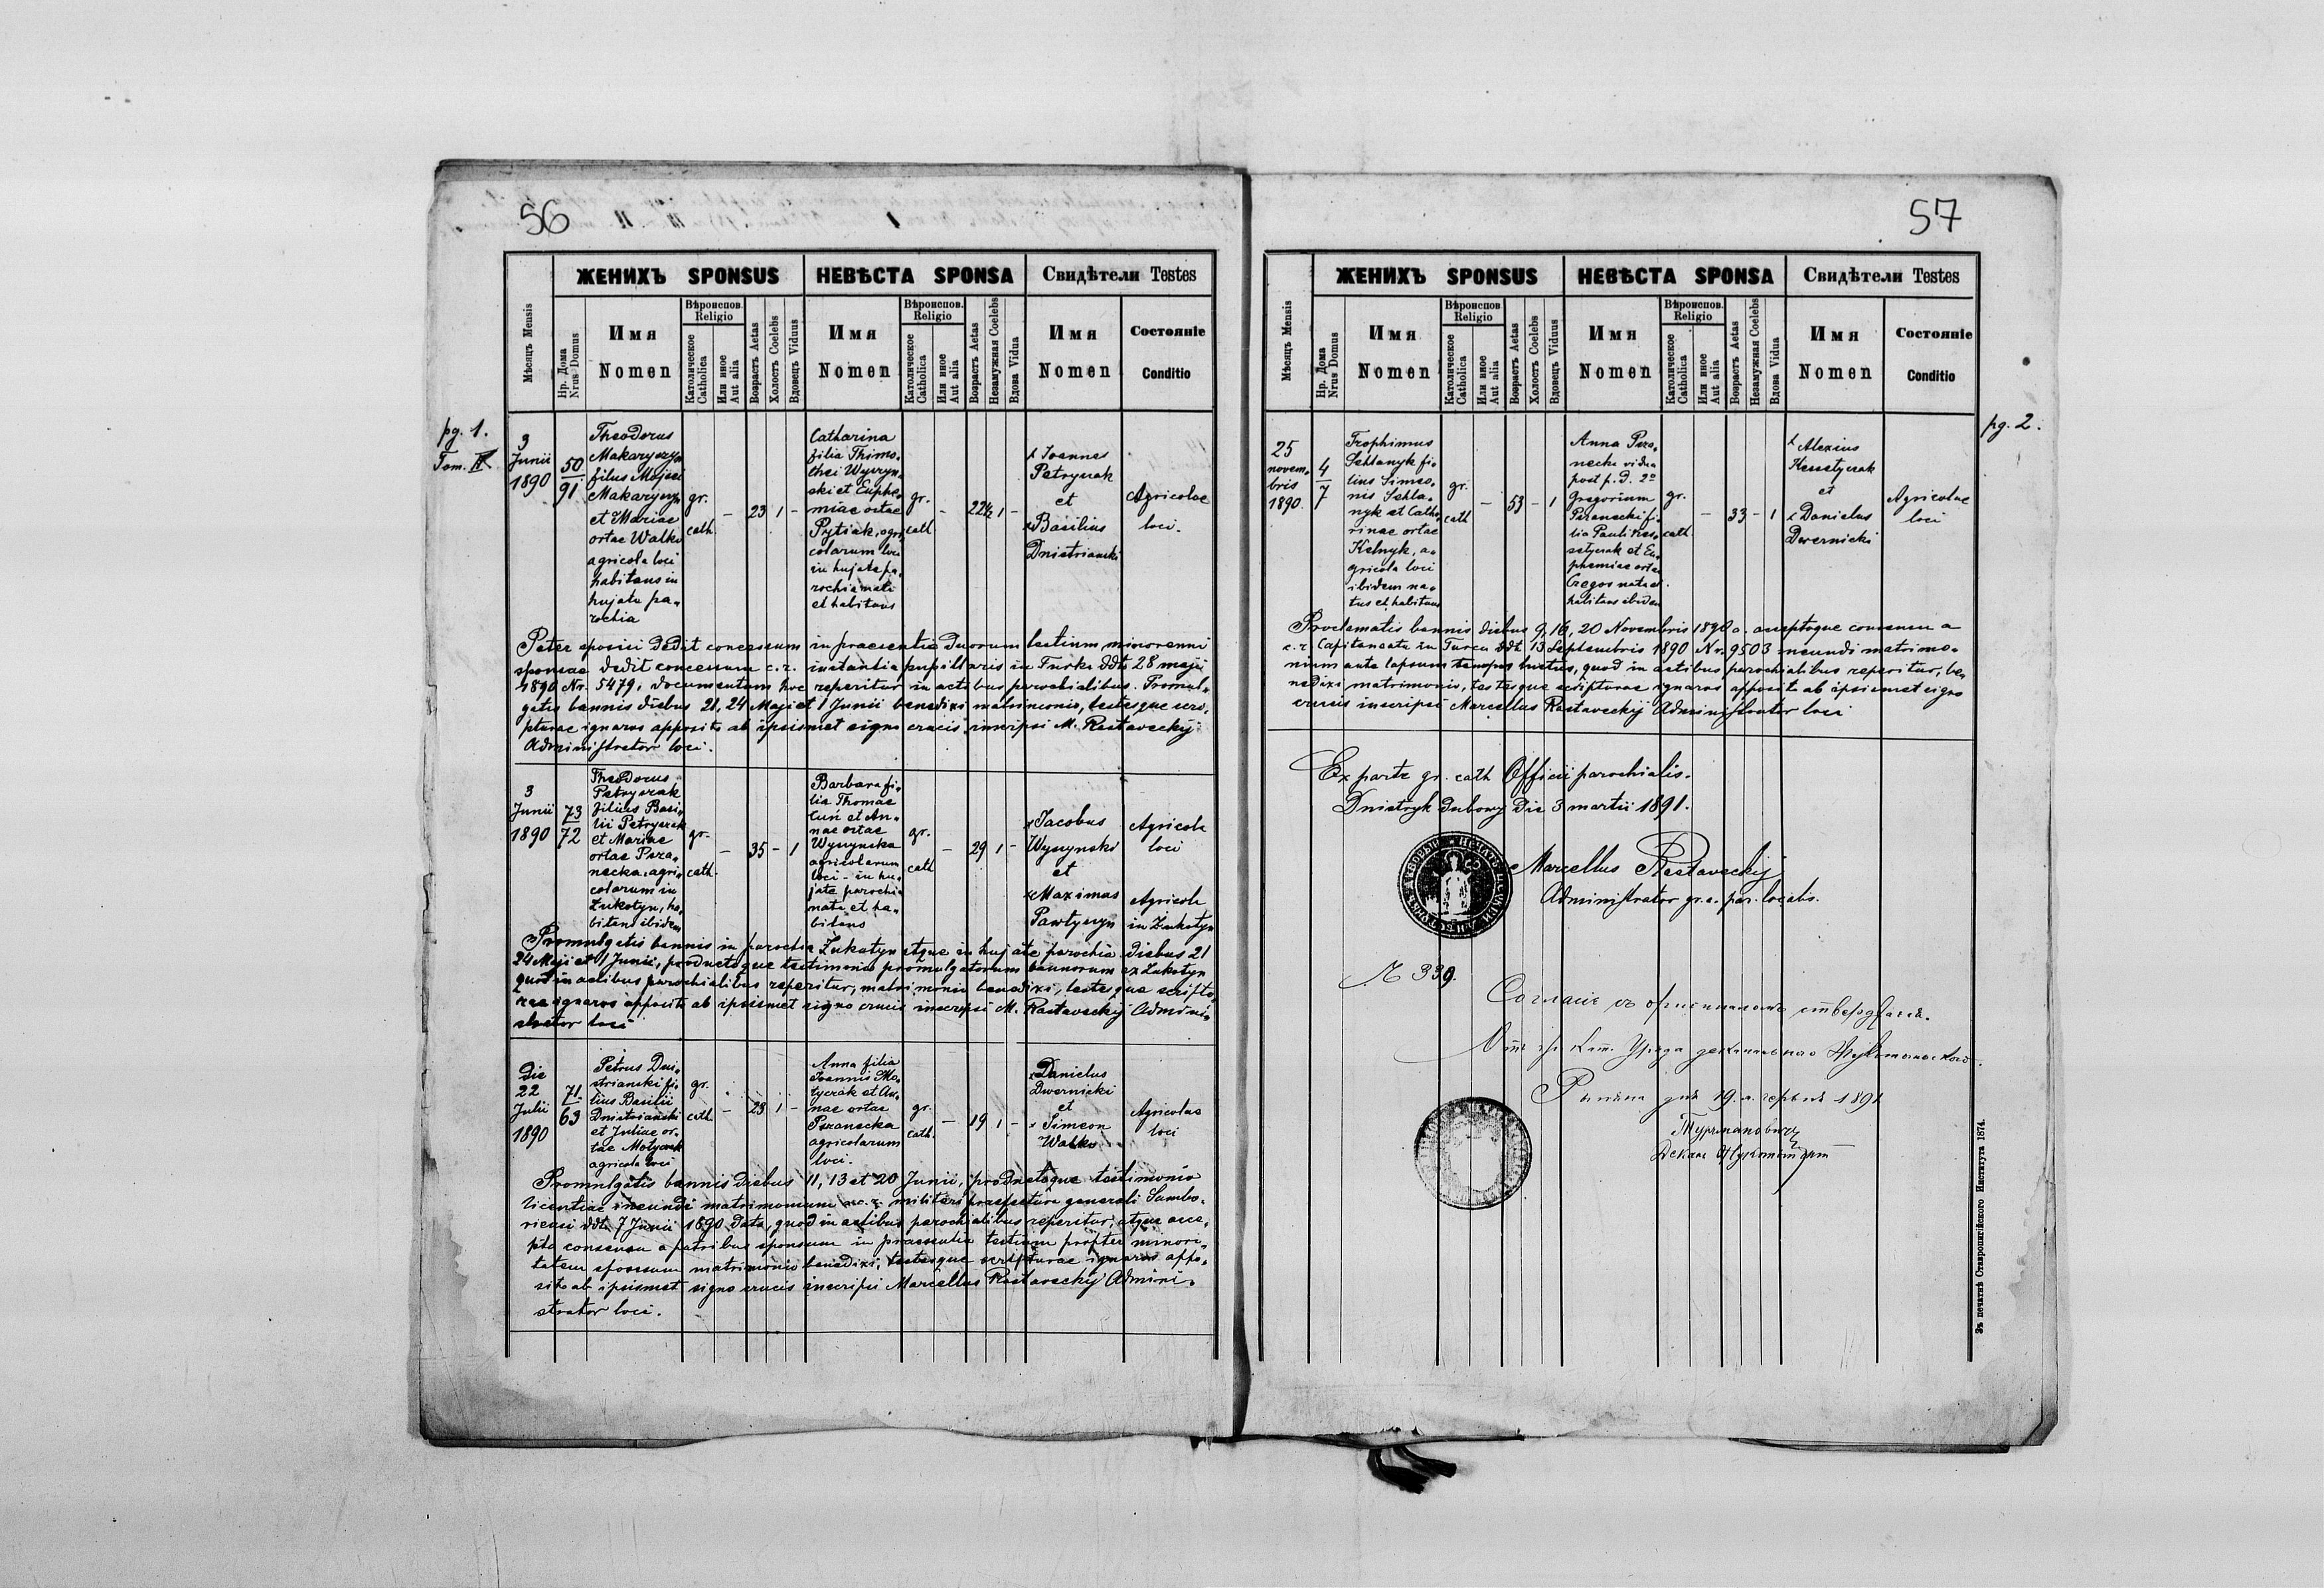 56
pg. 1.
Tom. IV
ЖЕНИХЪ SPONSUS
НЕВѢСТА SPONSA
Свидѣтели Testes
Мѣсяцъ Mensis
Нр. Дома
Nrus Domus
Имя
Nomen
Вѣроиспов.
Religio
Католическое
Catholica
Или иное
Aut alia
Возрастъ Aetas
Холостъ Coelebs
Вдовецъ Viduus
Имя
Nomen
Вѣроиспов.
Religio
Католическое
Catholica
Или иное
Aut alia
Возрастъ Aetas
Незамужная Coelebs
Вдова Vidua
Имя
Nomen
Состояніе
Conditio
3
Junii
1890
50
91
Theodorus
Makaryczyn
filius Mojsei
Makaryczyn
et Mariae
ortae Walko
agricola loci
habitans in
hujate pa-
rochia
gr.
cath.
-
23
1
-
Catharina
filia Thimo-
thei Wyczyn-
ski et Euphe-
miae ortae
Pytiak, agri-
colarum loci
in hujate pa-
rochia nata
et habitans
gr.
cath
-
22½
1
-
x Joannes
Petryczak
et
x Basilius
Dnistrianski
Agricolae
loci.
Pater sponsi dedit concessum in praesentia duorum testium minorenni
sponsae dedit concessum c. r. instantia pupillaris in Turka ddto 28 maji
1890 Nr. 5479, documentum hoc reperitur in actibus parochialibus. Promul-
gatis bannis diebus 21, 24 Maji et 1 Junii benedixi matrimonio, testesque scri-
pturae ignaros apposito ab ipsismet signo crucis inscripsi M. Rastaveckij
Administrator loci.
3
Junii
1890
73
72
Theodorus
Petryczak
filius Basi-
lii Petryczak
et Mariae
ortae Psza-
necka, agri-
colarum in
Łukotyn, ha-
bitans ibidem
gr.
cath.
-
35
-
1
Barbara fi-
lia Thomae
Cun et An-
nae ortae
Wyczynska
agricolarum
loci - in hu-
jate parochia
nata et ha-
bitans
gr.
cath
-
29
1
-
x Jacobus
Wyczynski
et
x Maximus
Pawłyczyn
Agricola
loci
Agricola
in Łukotyn
Promulgatis bannis in parochia Łukotyn atque in hujate parochia diebus 21
24 Maji et 1 Junii, productoque testimonio promulgatorum bannorum ex Łukotyn
quod in actibus parochialibus reperitur, matrimonio benedixi, testesque scriptu-
rae ignaros apposito ab ipsismet signo crucis inscripsi M. Rastaveckij Admini-
strator loci
Die
22
Julii
1890
71
63
Petrus Dni-
strianski fi-
lius Basilii
Dnistrianski
et Juliae or-
tae Motyczak
agricola loci
gr.
cath.
-
23
1
-
Anna filia
Joannis Mo-
tyczak et An-
nae ortae
Pszanecka
agricolarum
loci.
gr.
cath.
-
19
1
-
x Danielus
Dwernicki
et
x Simeon
Walko
Agricolae
loci
Promulgatis bannis diebus 11, 13 et 20 Junii, productoque testimonio
licentiae ineundi matrimonium a c. r. militari praefectura generali Sambo-
riensi ddto 7 Junii 1890 data, quod in actibus parochialibus reperitur, atque acce-
pto consensu a patribus sponsum in praesentia testium propter minori-
tatem sponsum matrimonio benedixi, testesque scripturae ignaros appo-
sito ab ipsismet signo crucis inscripsi Marcellus Rastaveckij Admini-
strator loci.
57
pg. 2.
ЖЕНИХЪ SPONSUS
НЕВѢСТА SPONSA
Свидѣтели Testes
Мѣсяцъ Mensis
Нр. Дома
Nrus Domus
Имя
Nomen
Вѣроиспов
Religio
Католическое
Catholica
Или иное
Aut alia
Возрастъ Aetas
Холостъ Coelebs
Вдовецъ Viduus
Имя
Nomen
Вѣроиспов.
Religio
Католическое
Catholica
Или иное
Aut alia
Возрастъ Aetas
Незамужная Coelebs
Вдова Vidua
Имя
Nomen
Состояніе
Conditio
25
novem-
bris
1890.
4
7
Trophimus
Schlanyk fi-
lius Simeo-
nis Schla-
nyk et Catha-
rinae ortae
Kelnyk, a-
gricola loci
ibidem na-
tus et habitans
gr.
cath
-
53
-
1
Anna Psza-
necka vidua
post p. d. 2o
Gregorium
Pszanecki fi-
lia Pauli Kes-
setyczak et Eu-
phemiae ortae
Cregos nata et
habitans ibidem
gr.
cath.
-
33
-
1
x Alexius
Kessetyczak
et
x Danielus
Dwernicki
Agricolae
loci
Proclamatis bannis diebus 9, 16, 20 Novembris 1890 a. acceptoque consensu a
c. r. Capitaneatu in Turca ddt 13 Septembris 1890 Nr. 9503 ineundi matrimo-
nium ante lapsum tempus luctus, quod in actibus parochialibus reperitur, be-
nedixi matrimonio, testesque scripturae ignaros apposito ab ipsismet signo
crucis inscripsi Marcellus Rastaveckij Administrator loci
Ex parte gr. cath Officii parochialis.
Dnistryk dubowy die 3 martii 1891.
Marcellus Rastaveckij
Administrator gr. c. par. localis.
N 339.
Согласіе съ оригиналомъ ствердзаєся.
Отъ гр. Кат. Уряда деканального
дня 19. л. червня 1891
Турманович
Декан
Зъ печатнѣ Ставропигійского Института 1874.